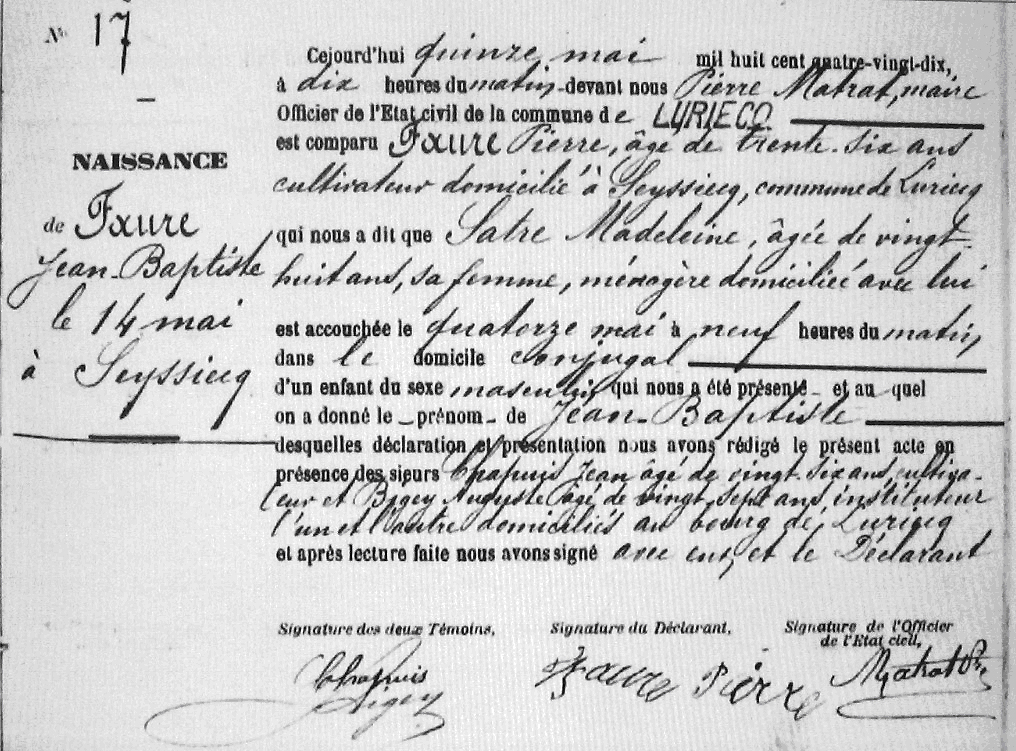 N° 17
NAISSANCE
de Faure
Jean-Baptiste
le 14 mai
à Seyssiecq
Cejourd'hui quinze mai mil huit cent quatre-vingt-dix,
à dix heures du matin devant nous Pierre Matrat, maire
Officier de l'Etat civil de la commune de LURIECQ
est comparu Faure Pierre, âgé de trente-six ans
cultivateur domicilié à Seyssiecq, commune de Luriecq
qui nous a dit que Satre Madeleine, âgée de vingt-
huit ans, sa femme, ménagère domiciliée avec lui
est accouchée le quatorze mai à neuf heures du matin
dans le domicile conjugal
d'un enfant du sexe masculin qui nous a été présenté - et au quel
on a donné le - prénom - de Jean-Baptiste
desquelles déclaration et présentation nous avons rédigé le présent acte en
présence des sieurs Chapuis Jean âgé de vingt-six ans, cultiva-
teur et Bigey Auguste âgé de vingt-sept ans, instituteur
l'un et l'autre domiciliés au bourg de Luriecq
et après lecture faite nous avons signé avec eux et le Déclarant
Signature des deux Témoins,
Chapuis
Bigey
Signature du Déclarant,
Faure Pierre
Signature de l'Officier
de l'Etat civil,
Matrat Pre